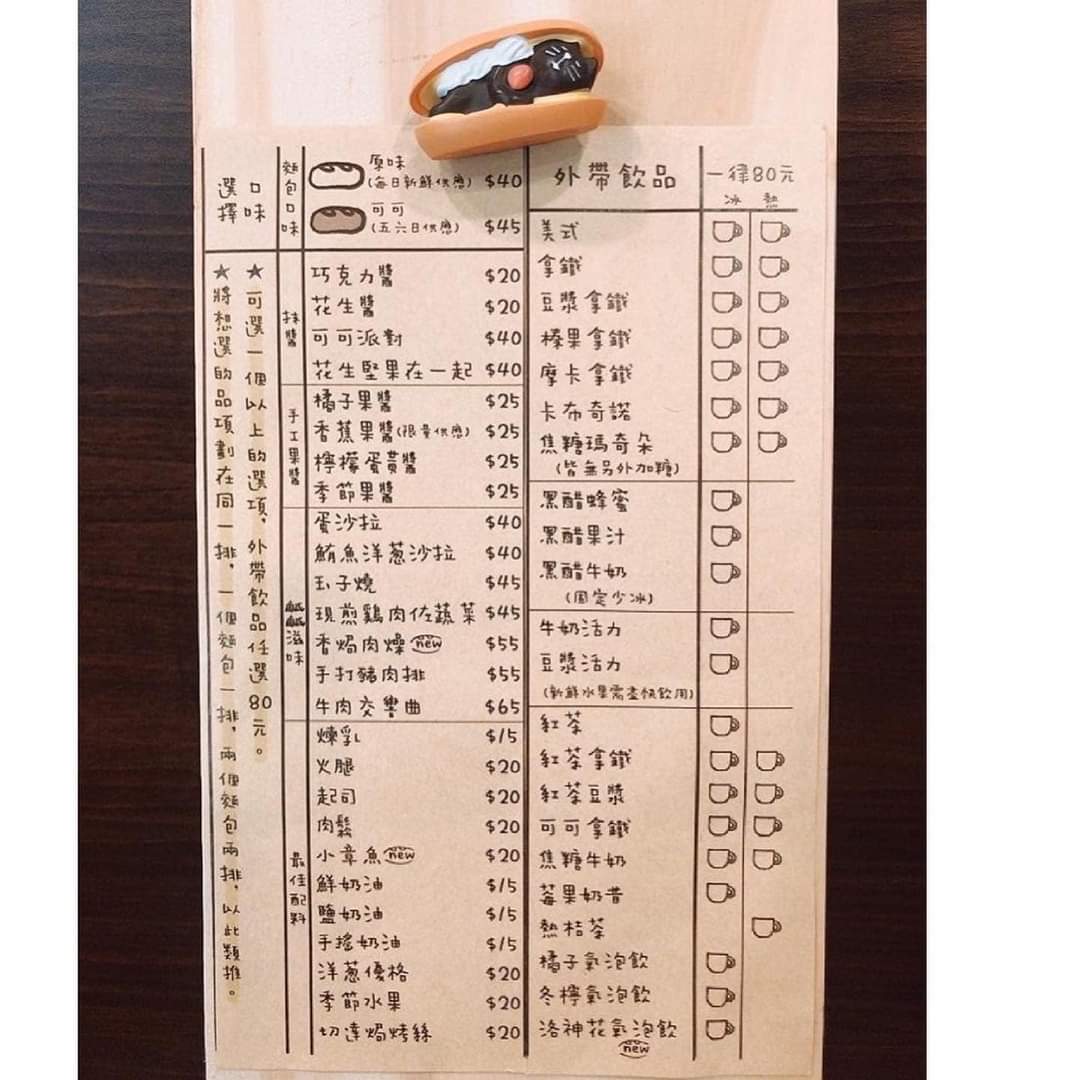 選擇口味
★可選一個以上的選項，外帶飲品任選80元。
★將想選的品項劃在同一排，一個麵包一排，兩個麵包兩排，以此類推。
麵包口味
原味
(每日新鮮供應) $40
可可
(五六日供應) $45
抹醬
巧克力醬 $20
花生醬 $20
可可派對 $40
花生堅果在一起 $40
手工果醬
橘子果醬 $25
香蕉果醬(限量供應) $25
檸檬蛋黃醬 $25
季節果醬 $25
鹹鹹滋味
蛋沙拉 $40
鮪魚洋蔥沙拉 $40
玉子燒 $45
現煎雞肉佐蔬菜 $45
香焗肉燥 new $55
手打豬肉排 $55
牛肉交響曲 $65
最佳配料
煉乳 $15
火腿 $20
起司 $20
肉鬆 $20
小章魚 new $20
鮮奶油 $15
鹽奶油 $15
手搖奶油 $15
洋蔥優格 $20
季節水果 $20
切達焗烤絲 $20
外帶飲品 一律80元
冰 熱
美式
拿鐵
豆漿拿鐵
榛果拿鐵
摩卡拿鐵
卡布奇諾
焦糖瑪奇朵
(皆無另外加糖)
黑醋蜂蜜
黑醋果汁
黑醋牛奶
(固定少冰)
牛奶活力
豆漿活力
(新鮮水果需盡快飲用)
紅茶
紅茶拿鐵
紅茶豆漿
可可拿鐵
焦糖牛奶
莓果奶昔
熱桔茶
橘子氣泡飲
冬檸氣泡飲
洛神花氣泡飲
new